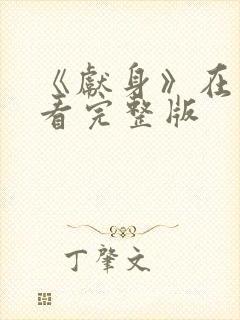 《献身》在
看完整版
丁肇文